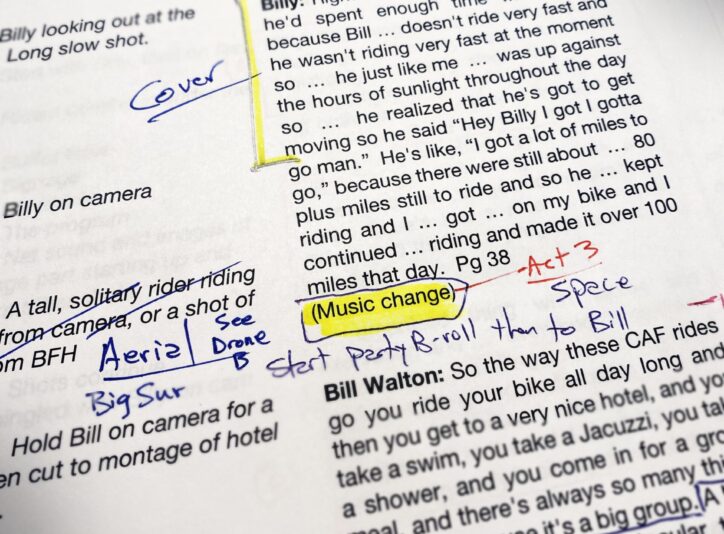 Billy looking out at the
Long slow shot.
Cover
Billy on camera
A tall, solitary rider riding
from camera, or a shot of
om BFH
Aerial
See
Drone
B
Big Sur
Hold Bill on camera for a
en cut to montage of hotel
Billy:
he'd spent enough time
because Bill … doesn't ride very fast and
he wasn't riding very fast at the moment
so … he just like me … was up against
the hours of sunlight throughout the day
so … he realized that he's got to get
moving so he said “Hey Billy I got I gotta
go man.” He's like, “I got a lot of miles to
go,” because there were still about … 80
plus miles still to ride and so he … kept
riding and I … got … on my bike and I
continued … riding and made it over 100
miles that day. Pg 38
(Music change)
Act 3
Space
Start party B-roll then to Bill
Bill Walton: So the way these CAF rides
go you ride your bike all day long and
then you get to a very nice hotel, and you
take a swim, you take a Jacuzzi, you ta
a shower, and you come in for a gro
meal, and there's always so many thi
it's a big group. A